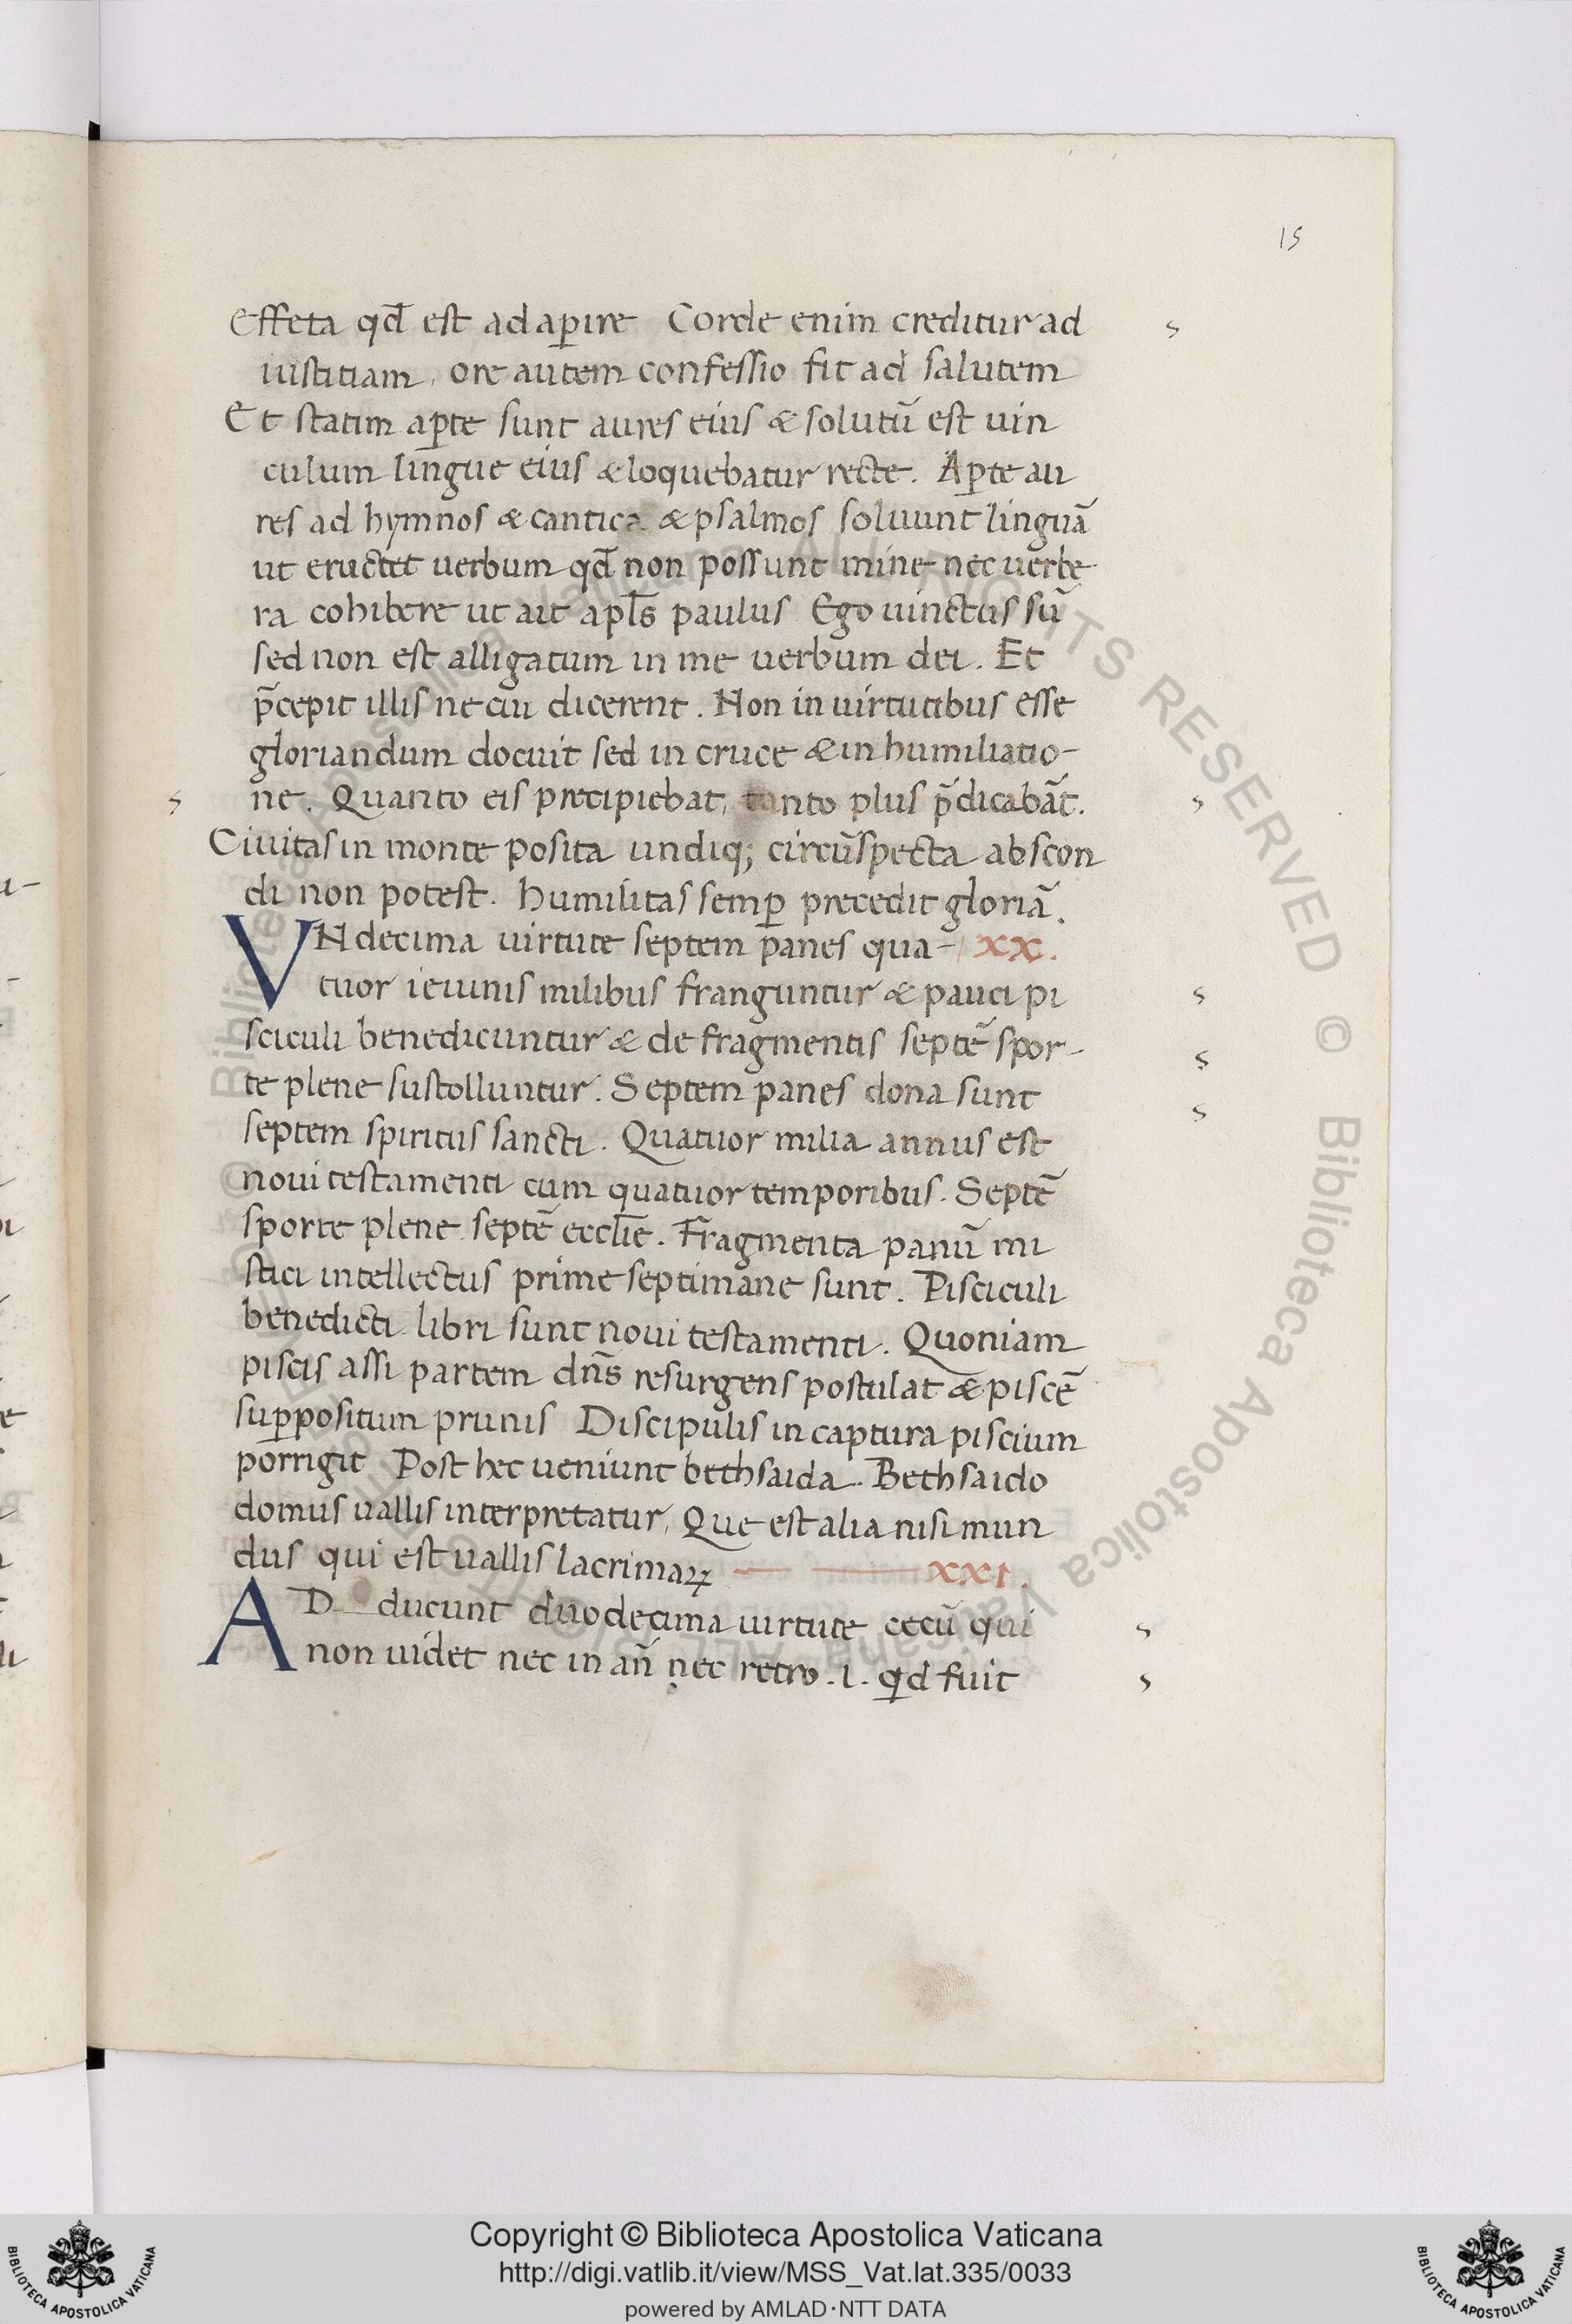 15
Effeta qd̄ est adap̱ire Corde enim creditur ad
iustitiam, ore autem confessio fit ad salutem
Et statim ap̱te sunt aures eius & solutū est uin
culum lingue eius & loquebatur recte. Ap̱te au
res ad hymnos & cantica & psalmos soluunt linguā
ut eructet uerbum qd̄ non possunt mine nec uerbe
ra cohibere ut ait apl̄s paulus Ego uinctus sū
sed non est alligatum in me uerbum dei. Et
p̄cepit illis ne cui dicerent. Non in uirtutibus esse
gloriandum docuit sed in cruce & in humiliatio-
ne. Quanto eis precipiebat, tanto plus p̄dicabāt.
Ciuitas in monte posita undiq; circūspecta abscon
di non potest. humilitas semp̱ precedit gloriā.
VNdecima uirtute septem panes qua- xx.
tuor ieiunis milibus franguntur & pauci pi
sciculi benedicuntur & de fragmentis septē spor-
te plene sustolluntur. Septem panes dona sunt
septem spiritus sancti. Quatuor milia annus est
noui testamenti cum quatuor temporibus. Septē
sporte plene septē eccl̄ie. Fragmenta panū mi
stici intellectus prime septimane sunt. Pisciculi
benedicti libri sunt noui testamenti. Quoniam
piscis assi partem dn̄s resurgens postulat & piscē
sup̱positum prunis Discipulis in captura piscium
porrigit Post hec ueniunt bethsaida. Bethsaida
domus uallis interpretatur, Que est alia nisi mun
dus qui est uallis lacrimaꝝ xxi.
AD ducunt duodecima uirtute cecū qui
non uidet nec in an̄ nec retro .i. qd fuit
Copyright © Biblioteca Apostolica Vaticana
http://digi.vatlib.it/view/MSS_Vat.lat.335/0033
powered by AMLAD·NTT DATA